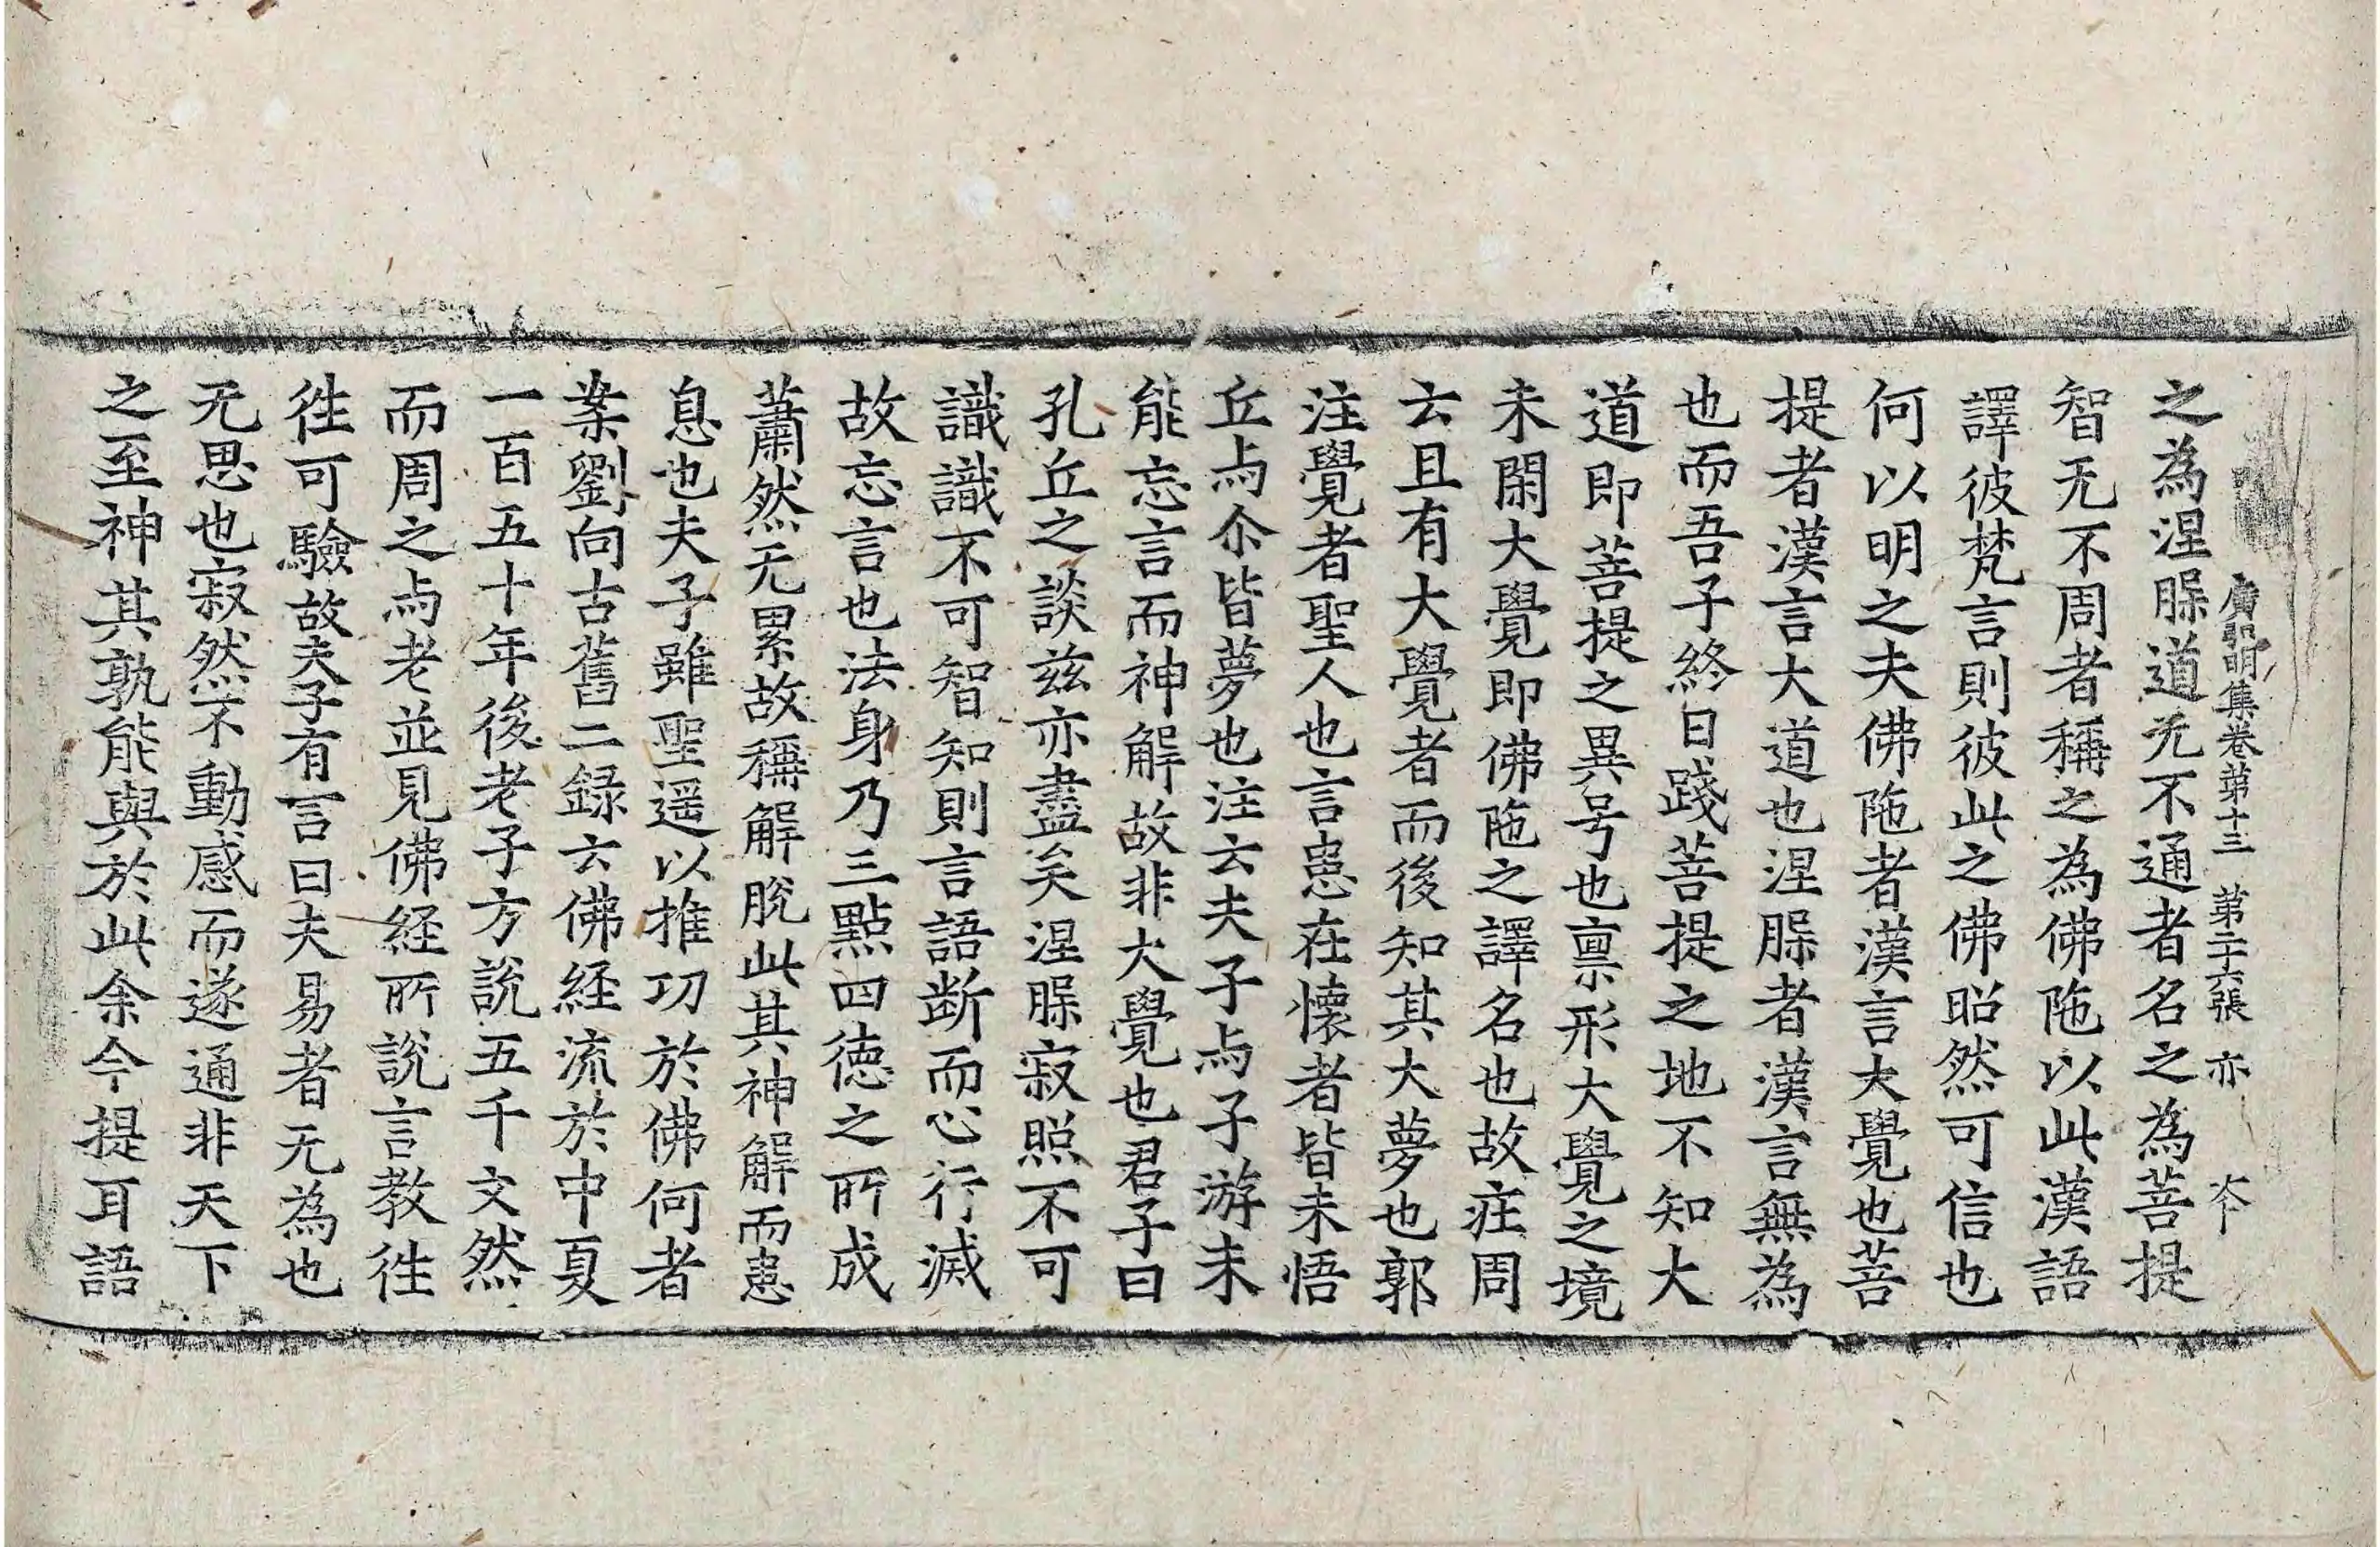 廣弘明集卷第十三 第二十六張 亦
之為涅脲道无不通者名之為菩提
智无不周者稱之為佛陁以此漢語
譯彼梵言則彼此之佛昭然可信也
何以明之夫佛陁者漢言大覺也菩
提者漢言大道也涅脲者漢言無為
也而吾子終日踐菩提之地不知大
道即菩提之異号也禀形大覺之境
未閑大覺即佛陁之譯名也故庄周
云且有大覺者而後知其大夢也郭
注覺者聖人也言患在懷者皆未悟
丘与尒皆夢也注云夫子与子游未
能忘言而神解故非大覺也君子曰
孔丘之談兹亦盡矣涅脲寂照不可
識識不可智知則言語断而心行滅
故忘言也法身乃三點四徳之所成
蕭然无累故稱解脫此其神解而患
息也夫子雖聖遥以推功於佛何者
案劉向古舊二録云佛経流於中夏
一百五十年後老子方說五千文然
而周之与老並見佛経所說言教徃
徃可驗故夫子有言曰夫易者无為也
无思也寂然不動感而遂通非天下
之至神其孰能與於此余今提耳語